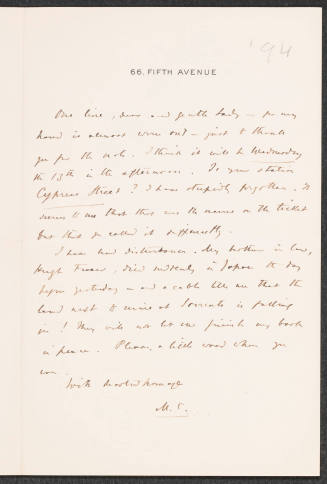 '94
66. FIFTH AVENUE
One line, dear and gentle lady — for my
hand is almost worn out — just to thank
you for the note. I think it will be Wednesday
the 13th in the afternoon. Is your station
Cypress Street? I have stupidly forgotten. It
seems to me that that was the name on the ticket
but that you called it differently.
I have had disturbance. My brother in law,
Hugh Fraser, died suddenly in Japan the day
before yesterday — and a cable tells me that the
land next to mine at Sorrento is falling
in! They will not let me finish my book
in peace. Please, a little word when you
can.
With heartfelt homage
M. C.